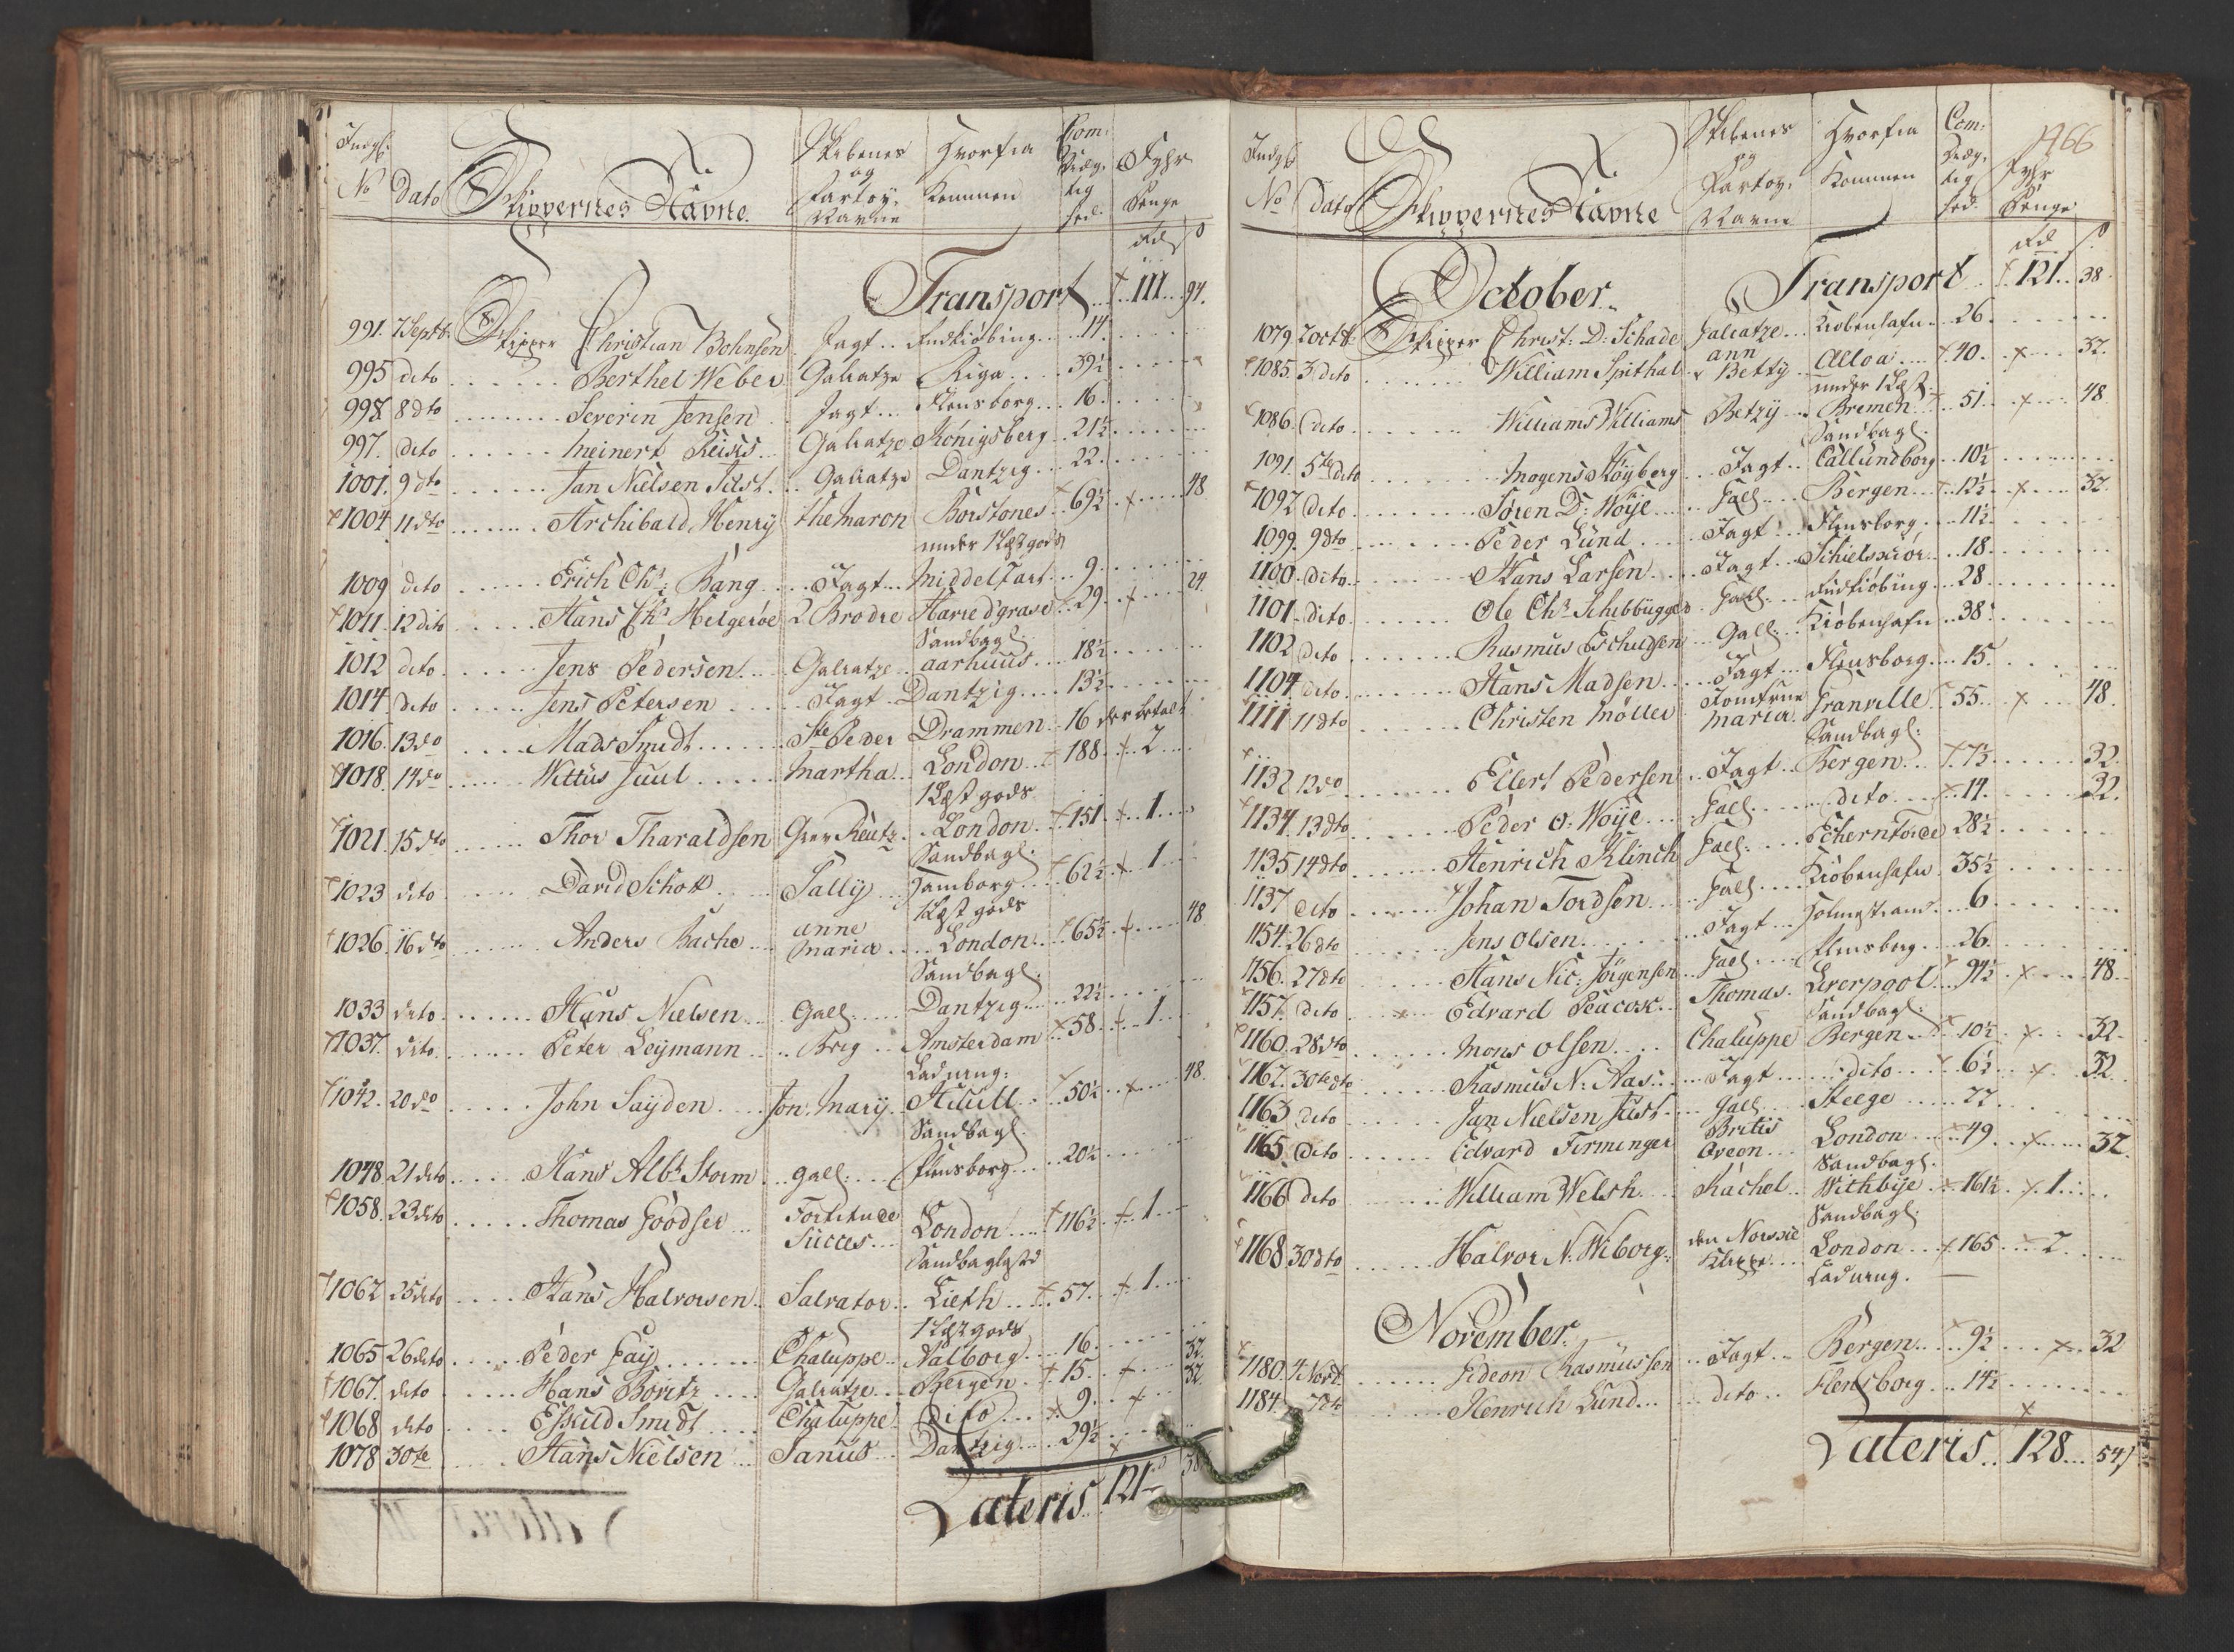 Indg: No Dato Skippernes Navne Skibenes og Fartøy: Navne Hvorfra Kommen Com: Dræg: tig hed. Fyhr Penge
Rd ß
Transport 111 94.
991. 7 Septb: Skipper Christian Bohnsen Jagt Rudkiøbing 14.
995 dito Berthel Weber Galiatze Riga 39½
998 8dto Severin Jensen Jagt Flensborg 16.
997. dito Meinert Reiers Galiatze Königsberg 21½
1001. 9dto Jan Nielsen Just Galiatze Dantzig 22.
1004 11dto Archibald Henry the Maron Borstones 69½ 48
under 1 Læst gods
1009 dito Erich Chr: Bang Jagt Middelfart 9.
1011. 12 dito Hans Chr Helgeröe 2 Brødre Havre d'grase 29. 24.
Sandbagl.
1012 dito Jens Pedersen Galiatze aarhuus 18½
1014. dito Jens Petersen Jagt Dantzig 13½
1016. 13do Mads Smidt Ste Peder Drammen 16 der betalt
1018. 14do Wittus Juul Martha London 188. 2.
1 Læst gods
1021. 15dto Thor Tharaldsen Grev Reutz London 151 1.
Sandbagl.
1023 dito David Schott Sally Hamborg 62½ 1
1 Læst gods
1026. 16dto Anders Bache anne Maria London 65½ 48
Sandbagl.
1033 dito Hans Nielsen Gall. Dantzig 22½
1037. dito Peter Leymann Brig Amsterdam 58. 1
Ladning:
1042. 20do John Sayden Jon. Mary Hull 50½ 48.
Sandbagl.
1048 21 dito Hans Albt Storm gall. Flensborg 20½
1058. 23 dito Thomas Goodser Fortitude Succes London 116½ 1
Sandbaglasted
1062 25 dito Hans Halvorsen Salvator Lieth 57. 1
1 Læst gods
1065 26 dito Peder Gay Chaluppe Aalborg 16.
1067. dito Hans Boritz Galiatze Bergen 15. 32.
1068 dito Eskild Smidt Chaluppe dito 9. 32.
1078 30te Hans Nielsen Janus Dantzig 29½
Lateris 121 38
1466
Indg: No Dato Skippernes Navne Skibenes og Fartøy: Navne Hvorfra Kommen Com: Dræg: tig hed. Fyhr Penge
Rd ß
October. Transport 121 38.
1079. 2 octb: Skipper Christ: D: Schade Galiatze Kiøbenhafn 26.
1085. 3 dito William Spithal ann Betty Alloa 40. 32.
under 1 Læst
1086. dito Williams Williams Betzy Bremen 51. 48
Sandbagl.
1091. 5te dito Mogens Høyberg Jagt Callundborg 10½
1092 dito Søren D: Wöye Gall. Bergen 12½ 32.
1099. 9dto Peder Lund Jagt Flensborg 11½
1100. dito Hans Larsen Jagt Schielskiör 18.
1101. dito Ole Chr. Schibbugges Gall. Rudkiøbing 28
1102 dito Rasmus Eschildsen Gall. Kiøbenhafn 38.
1104 dito Hans Madsen Jagt Flensborg 15.
1111 11dto Christen Møller Jomfrue Maria Granville 55. 48.
Sandbagl:
1132 12do Ellert Pedersen Jagt Bergen 7½ 32.
1134. 13dto Peder O. Wöye Gall. dito 14. 32.
1135 14dto Henrich Klinch Gall. Echernförde 28½
1137 dito Johan Tordsen Gall. Kiøbenhafn 35½
1154. 26dto Jens Olsen Jagt Holmestrand 6
1156. 27dto Hans Nic: Jörgensen Gall. Flensborg 26.
1157. dito Edvard Peacosc Thomas Liverpool 94½ 48.
Sandbagl.
1160. 28dto Mons Olsen Chaluppe Bergen 10½ 32.
1162. 30te dto Rasmus N: Aas Jagt dito 6½ 32
1163 dito Jan Nielsen Just Gall Steege 22
1165 dito Edvard Firminger Britis Qveen London 49. 32.
Sandbagl.
1166 dito William Welsh Rachel Withbye 161½ 1.
Sandbagl.
1168. 30dto Halvor N. Wiborg: den Norske Klippe London 165. 2.
Ladning.
November.
1180. 4 Novb: Gideon Rasmussen Jagt Bergen 9½ 32
1184. 7de Henrich Lund dito Flensborg 14½
Lateris 128 54